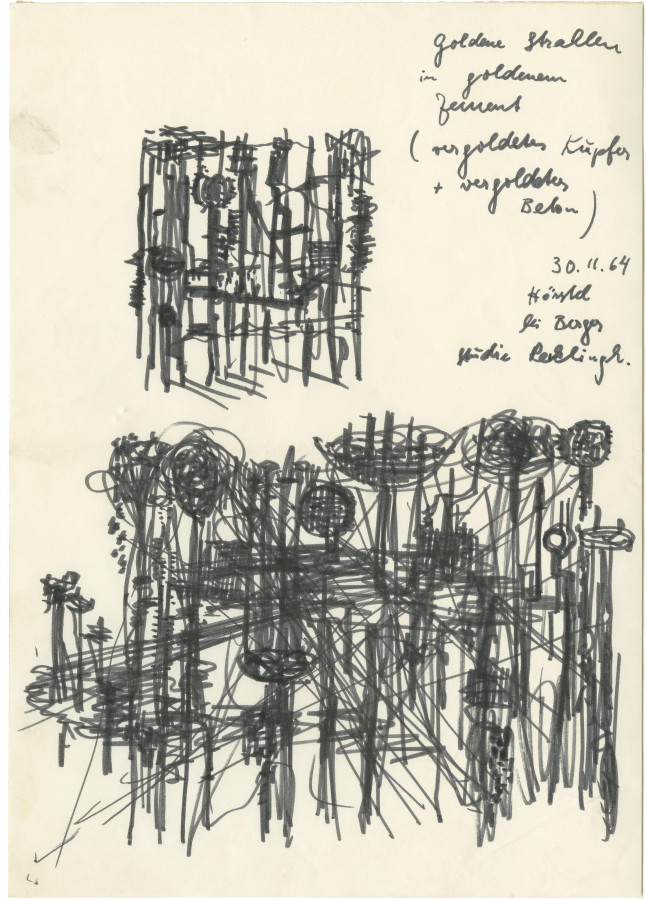 Goldene Strahlen
in goldenem
Zement
(vergoldetes Kupfer
+ vergoldeter
Beton)
30.11.64
Hörstel
bei Berges
Studie Recklingh.